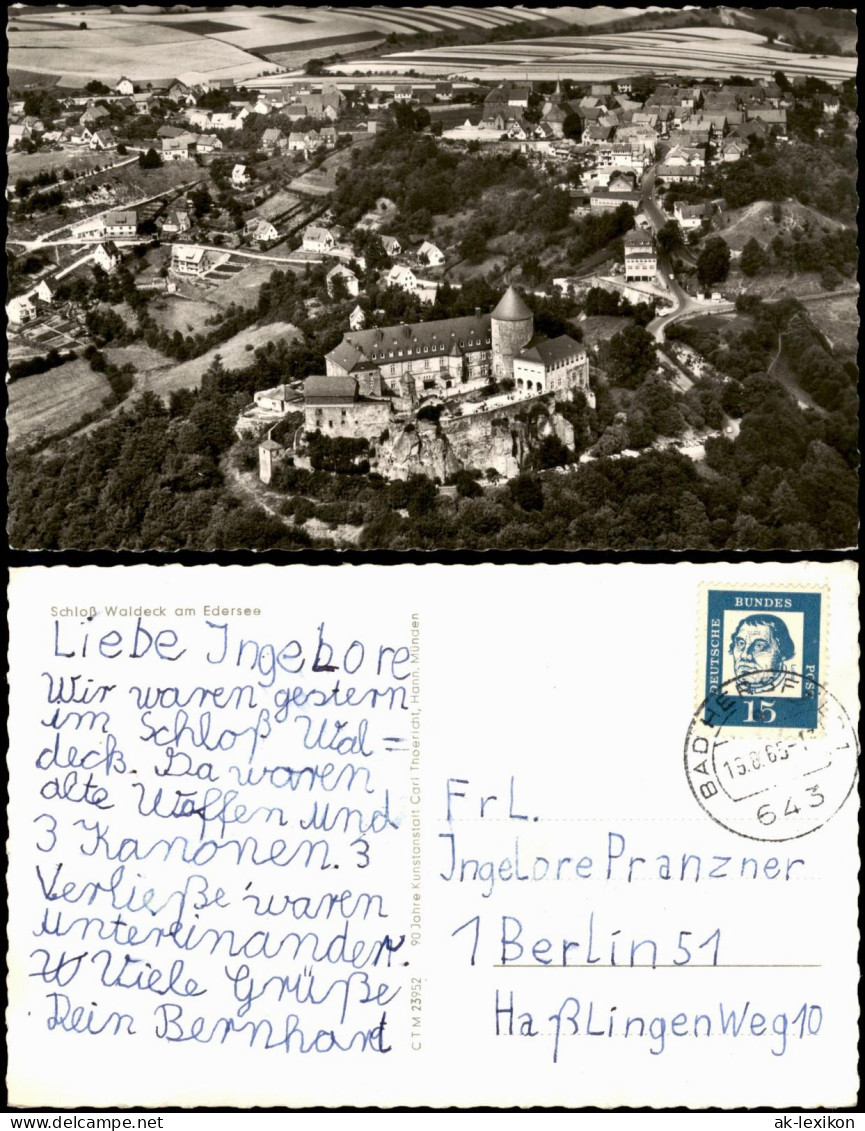 Schloß Waldeck am Edersee
Liebe Ingelore
Wir waren gestern
im Schloß Wal=
deck. Da waren
alte Waffen und
3 Kanonen. 3
Verließe waren
untereinander.
Viele Grüße
Dein Bernhart
CTM 23952 90 Jahre Kunstanstalt Carl Thoericht, Hann. Münden
DEUTSCHE
BUNDES
POST
15
BAD HERSFELD
643
Frl.
Ingelore Pranzner
1 Berlin 51
Haßlingen Weg 10
www.ansichtskartenversand.com
ak-lexikon